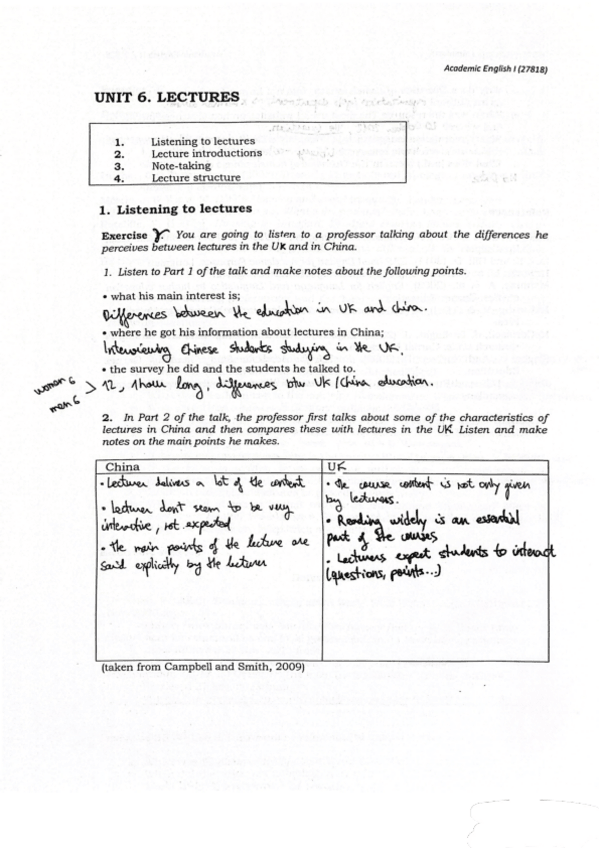 Academic English I (27818)
UNIT 6. LECTURES
1. Listening to lectures
2. Lecture introductions
3. Note-taking
4. Lecture structure
1. Listening to lectures
Exercise 1. You are going to listen to a professor talking about the differences he
perceives between lectures in the UK and in China.
1. Listen to Part 1 of the talk and make notes about the following points.
• what his main interest is;
Differences between the education in UK and china.
• where he got his information about lectures in China;
Interviewing Chinese students studying in the UK.
• the survey he did and the students he talked to.
women 6
men 6
> 12, 1 hour long, differences btw UK/China education.
2. In Part 2 of the talk, the professor first talks about some of the characteristics of
lectures in China and then compares these with lectures in the UK. Listen and make
notes on the main points he makes.
China
• Lecturer delivers a lot of the content
• Lecturer don't seem to be very
interactive, not expected
• the main points of the lecture are
said explicitly by the lecturer
UK
• the course content is not only given
by lecturers.
• Reading widely is an essential
part of the courses
• Lecturers expect students to interact
(questions, points...)
(taken from Campbell and Smith, 2009)